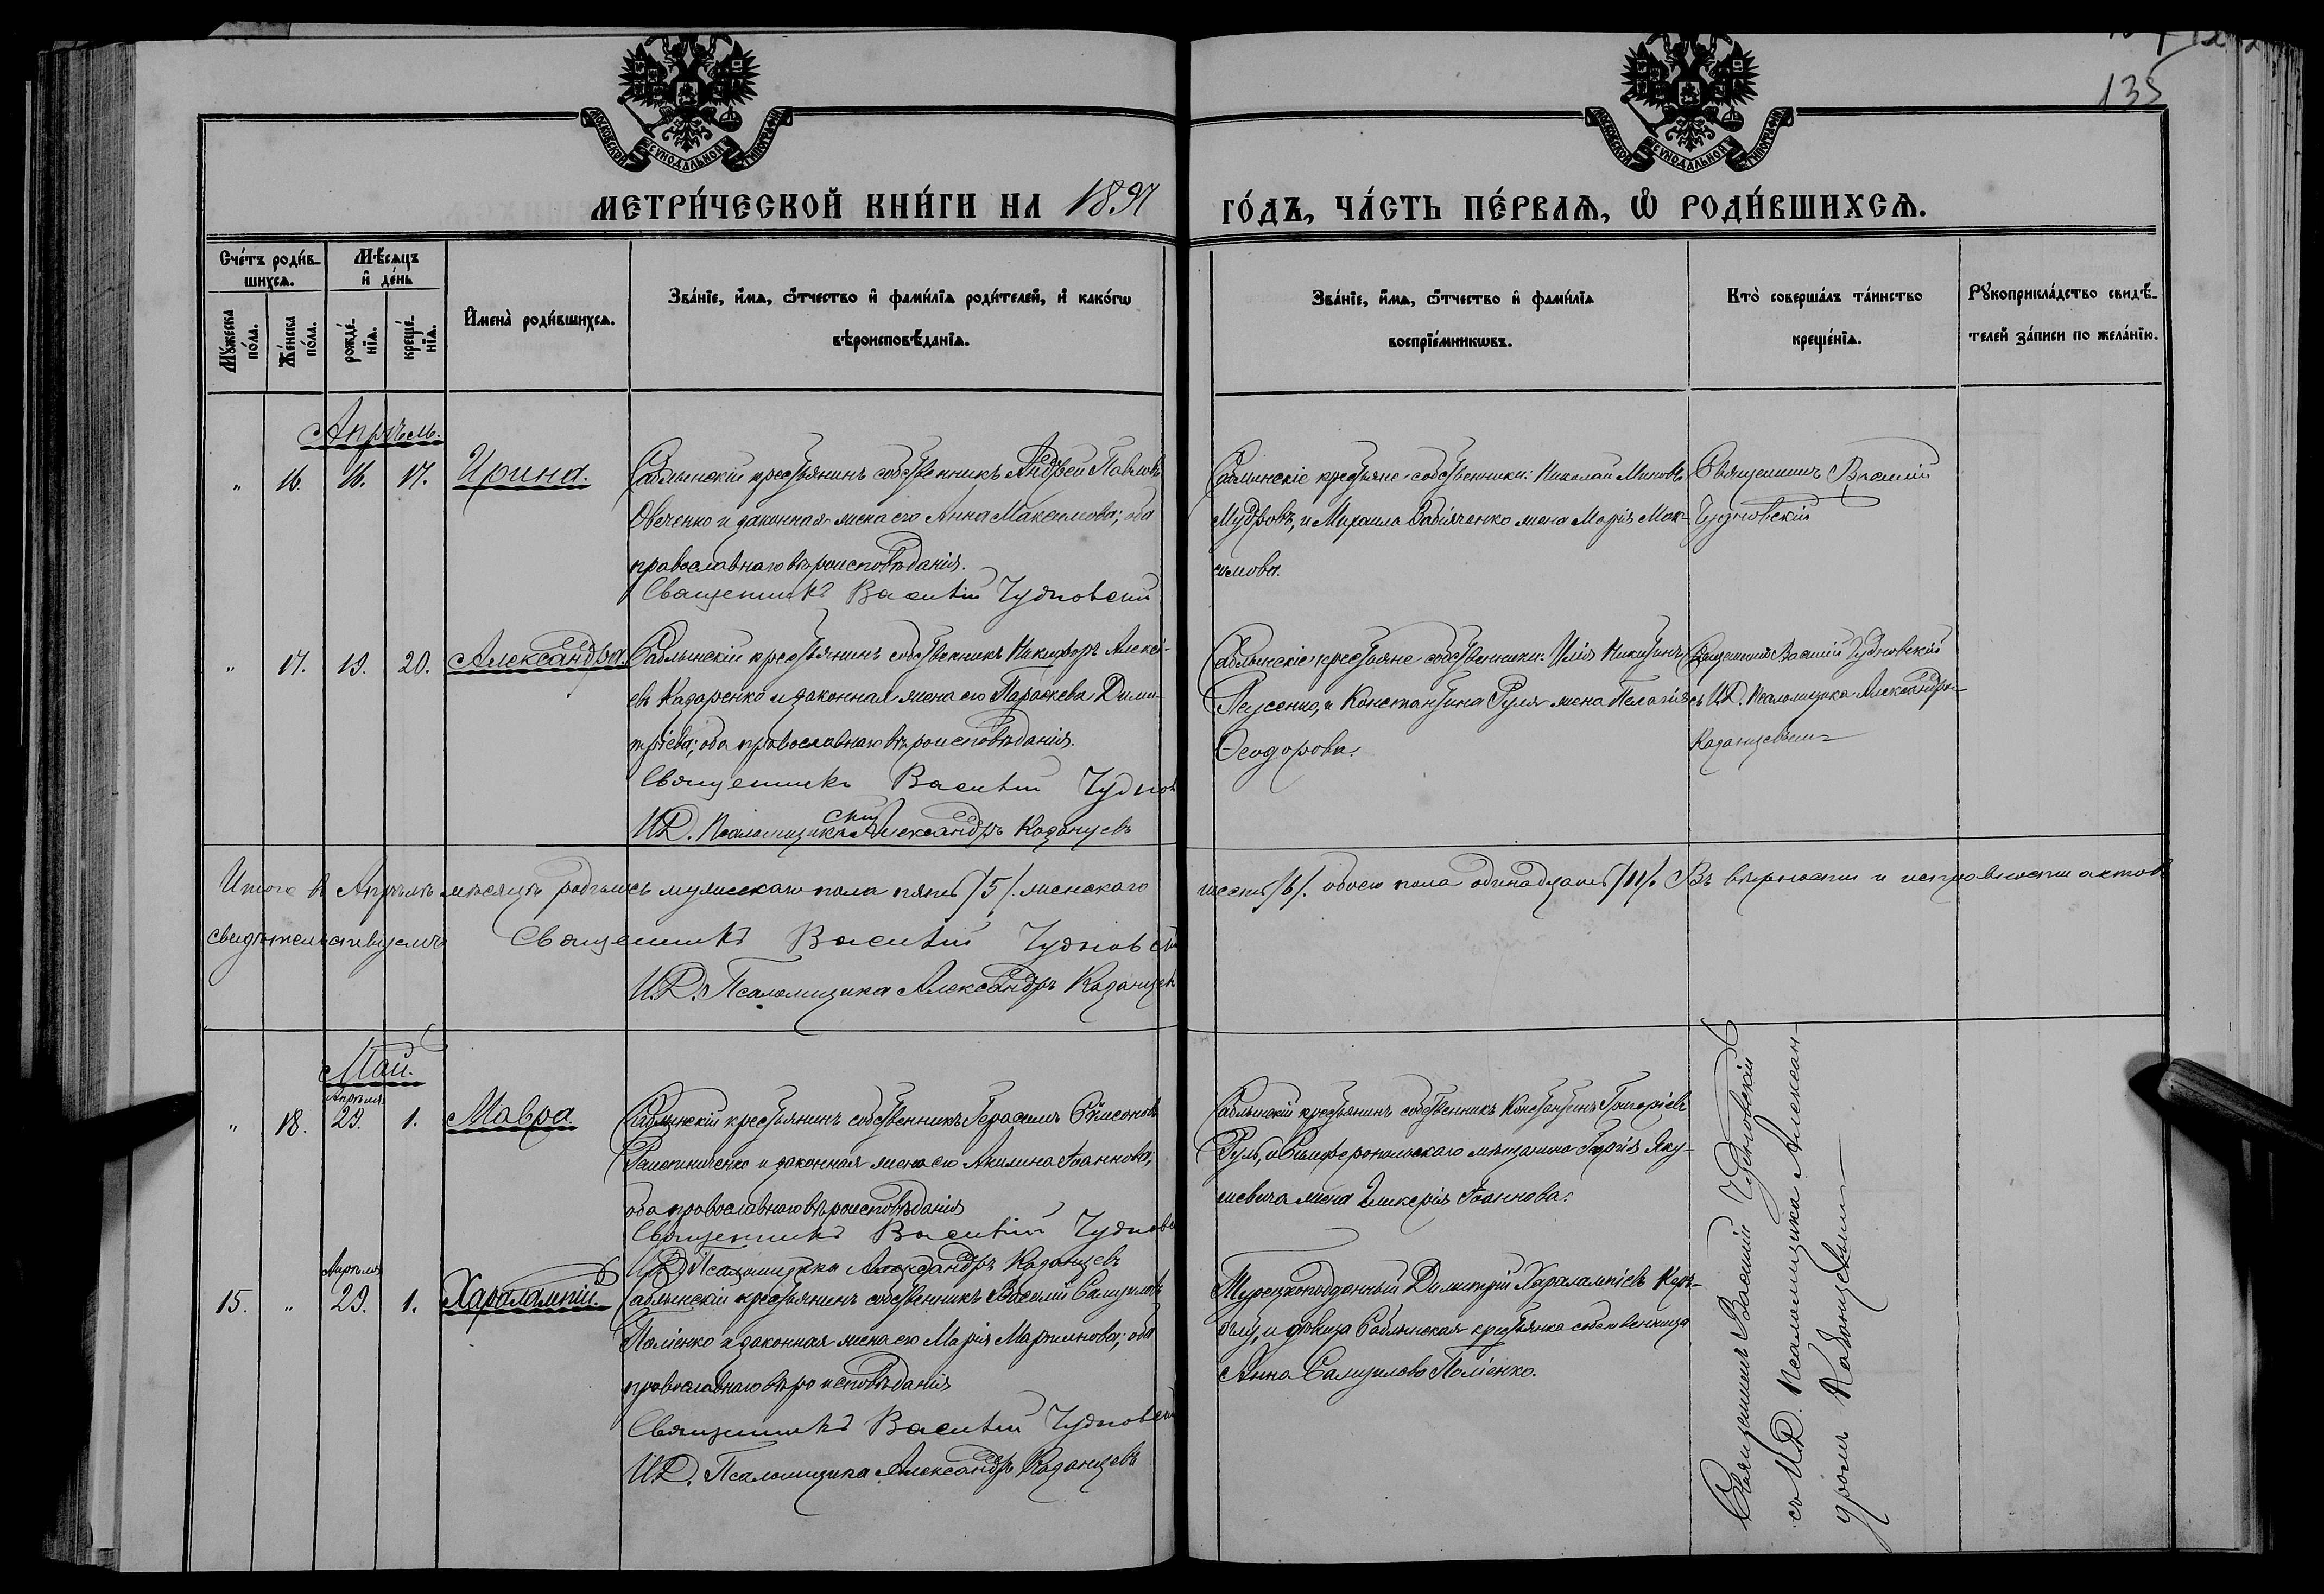 135
МОСКОВСКОЙ СѴНОДАЛЬНОЙ ТИПОГРАФІИ
МОСКОВСКОЙ СѴНОДАЛЬНОЙ ТИПОГРАФІИ
МЕТРИ́ЧЕСКОЙ КНИ́ГИ НА 1897 ГО́ДЪ, ЧА́СТЬ ПЕ́РВАѦ, Ѡ РОДИ́ВШИХСѦ.
Сче́тъ роди́в-
шихсѧ.
Мꙋ́жеска
по́ла.
Же́нска
по́ла.
Мѣ́сѧцъ
и҆ де́нь
рожде́-
нїѧ.
креще́-
нїѧ.
И҆мена̀ роди́вшихсѧ.
Зва́нїе, и҆́мѧ, ѻ҆́тчество и҆ фами́лїѧ роди́телей, и҆ како́гѡ
вѣроисповѣ́данїѧ.
Зва́нїе, и҆́мѧ, ѻ҆́тчество и҆ фами́лїѧ
воспрїе́мникѡвъ.
Кто̀ соверша́лъ та́инство
креще́нїѧ.
Рꙋкоприкла́дство свидѣ́-
телей за́писи по жела́нїю.
Апрѣль.
" 16. 16. 17. Ирина.
Саблынскій крестьянинъ собственникъ Андрей Павловъ
Овченко и законная жена его Анна Максимова; оба
православнаго вѣроисповѣданія.
Священникъ Василій Чудновскій
Саблынскіе крестьяне-собственники: Николай Миновъ
Мудровъ, и Михаила Забіяченко жена Марія Мак-
симова.
Священникъ Василій
Чудновскій
" 17. 19. 20. Александра.
Саблынскій крестьянинъ собственникъ Никифоръ Алексѣ-
евъ Назаренко и законная жена его Параскева Дими-
тріева; оба православнаго вѣроисповѣданія.
Священникъ Василій Чуднов
скій
И.Д. Псаломщика Александръ Казанцевъ
Саблынскіе крестьяне собственники: Илія Никитинъ
и Константина Руля жена Пелагія
Ѳеодорова.
Священникъ Василій Чудновскій
съ И.Д. Псаломщика Александро-
Казанцевымъ
Итого въ Апрѣлѣ мѣсяцѣ родилось мужескаго пола пять /5/. женскаго шесть /6/. обоего пола одинадцать /11/. Въ вѣрности и исправности актовъ
свидѣтельствуемъ Священникъ Василій Чудновскій
И.Д. Псаломщика Александръ Казанцевъ
Май.
Апрѣля
" 18. 29. 1. Мавра.
Саблынскій крестьянинъ собственникъ Герасимъ Сѵмеоновъ
и законная жена его Акилина Іоаннова;
оба православнаго вѣроисповѣданія
Священникъ Василій Чуднов
И.Д. Псаломщика Александръ Казанцевъ
Саблынскій крестьянинъ собственникъ Константинъ Григоріевъ
Руль, и Симферопольскаго мѣщанина Яку-
шевича жена Гликерія Іоаннова.
Апрѣля
15. " 29. 1. Харалампій.
Саблынскій крестьянинъ собственникъ Василій Самуиловъ
Поліенко и законная жена его Марія Мартинова; оба
православнаго вѣроисповѣданія
Священникъ Василій Чудновскій
И.Д. Псаломщика Александръ Казанцевъ
Турецкоподданный Димитрій Харалампіевъ
и дѣвица Саблынская крестьянка собственница
Анна Самуилова Поліенко.
Священникъ Василій Чудновскій
съ И.Д. Псаломщика Алексан-
дромъ Казанцевымъ